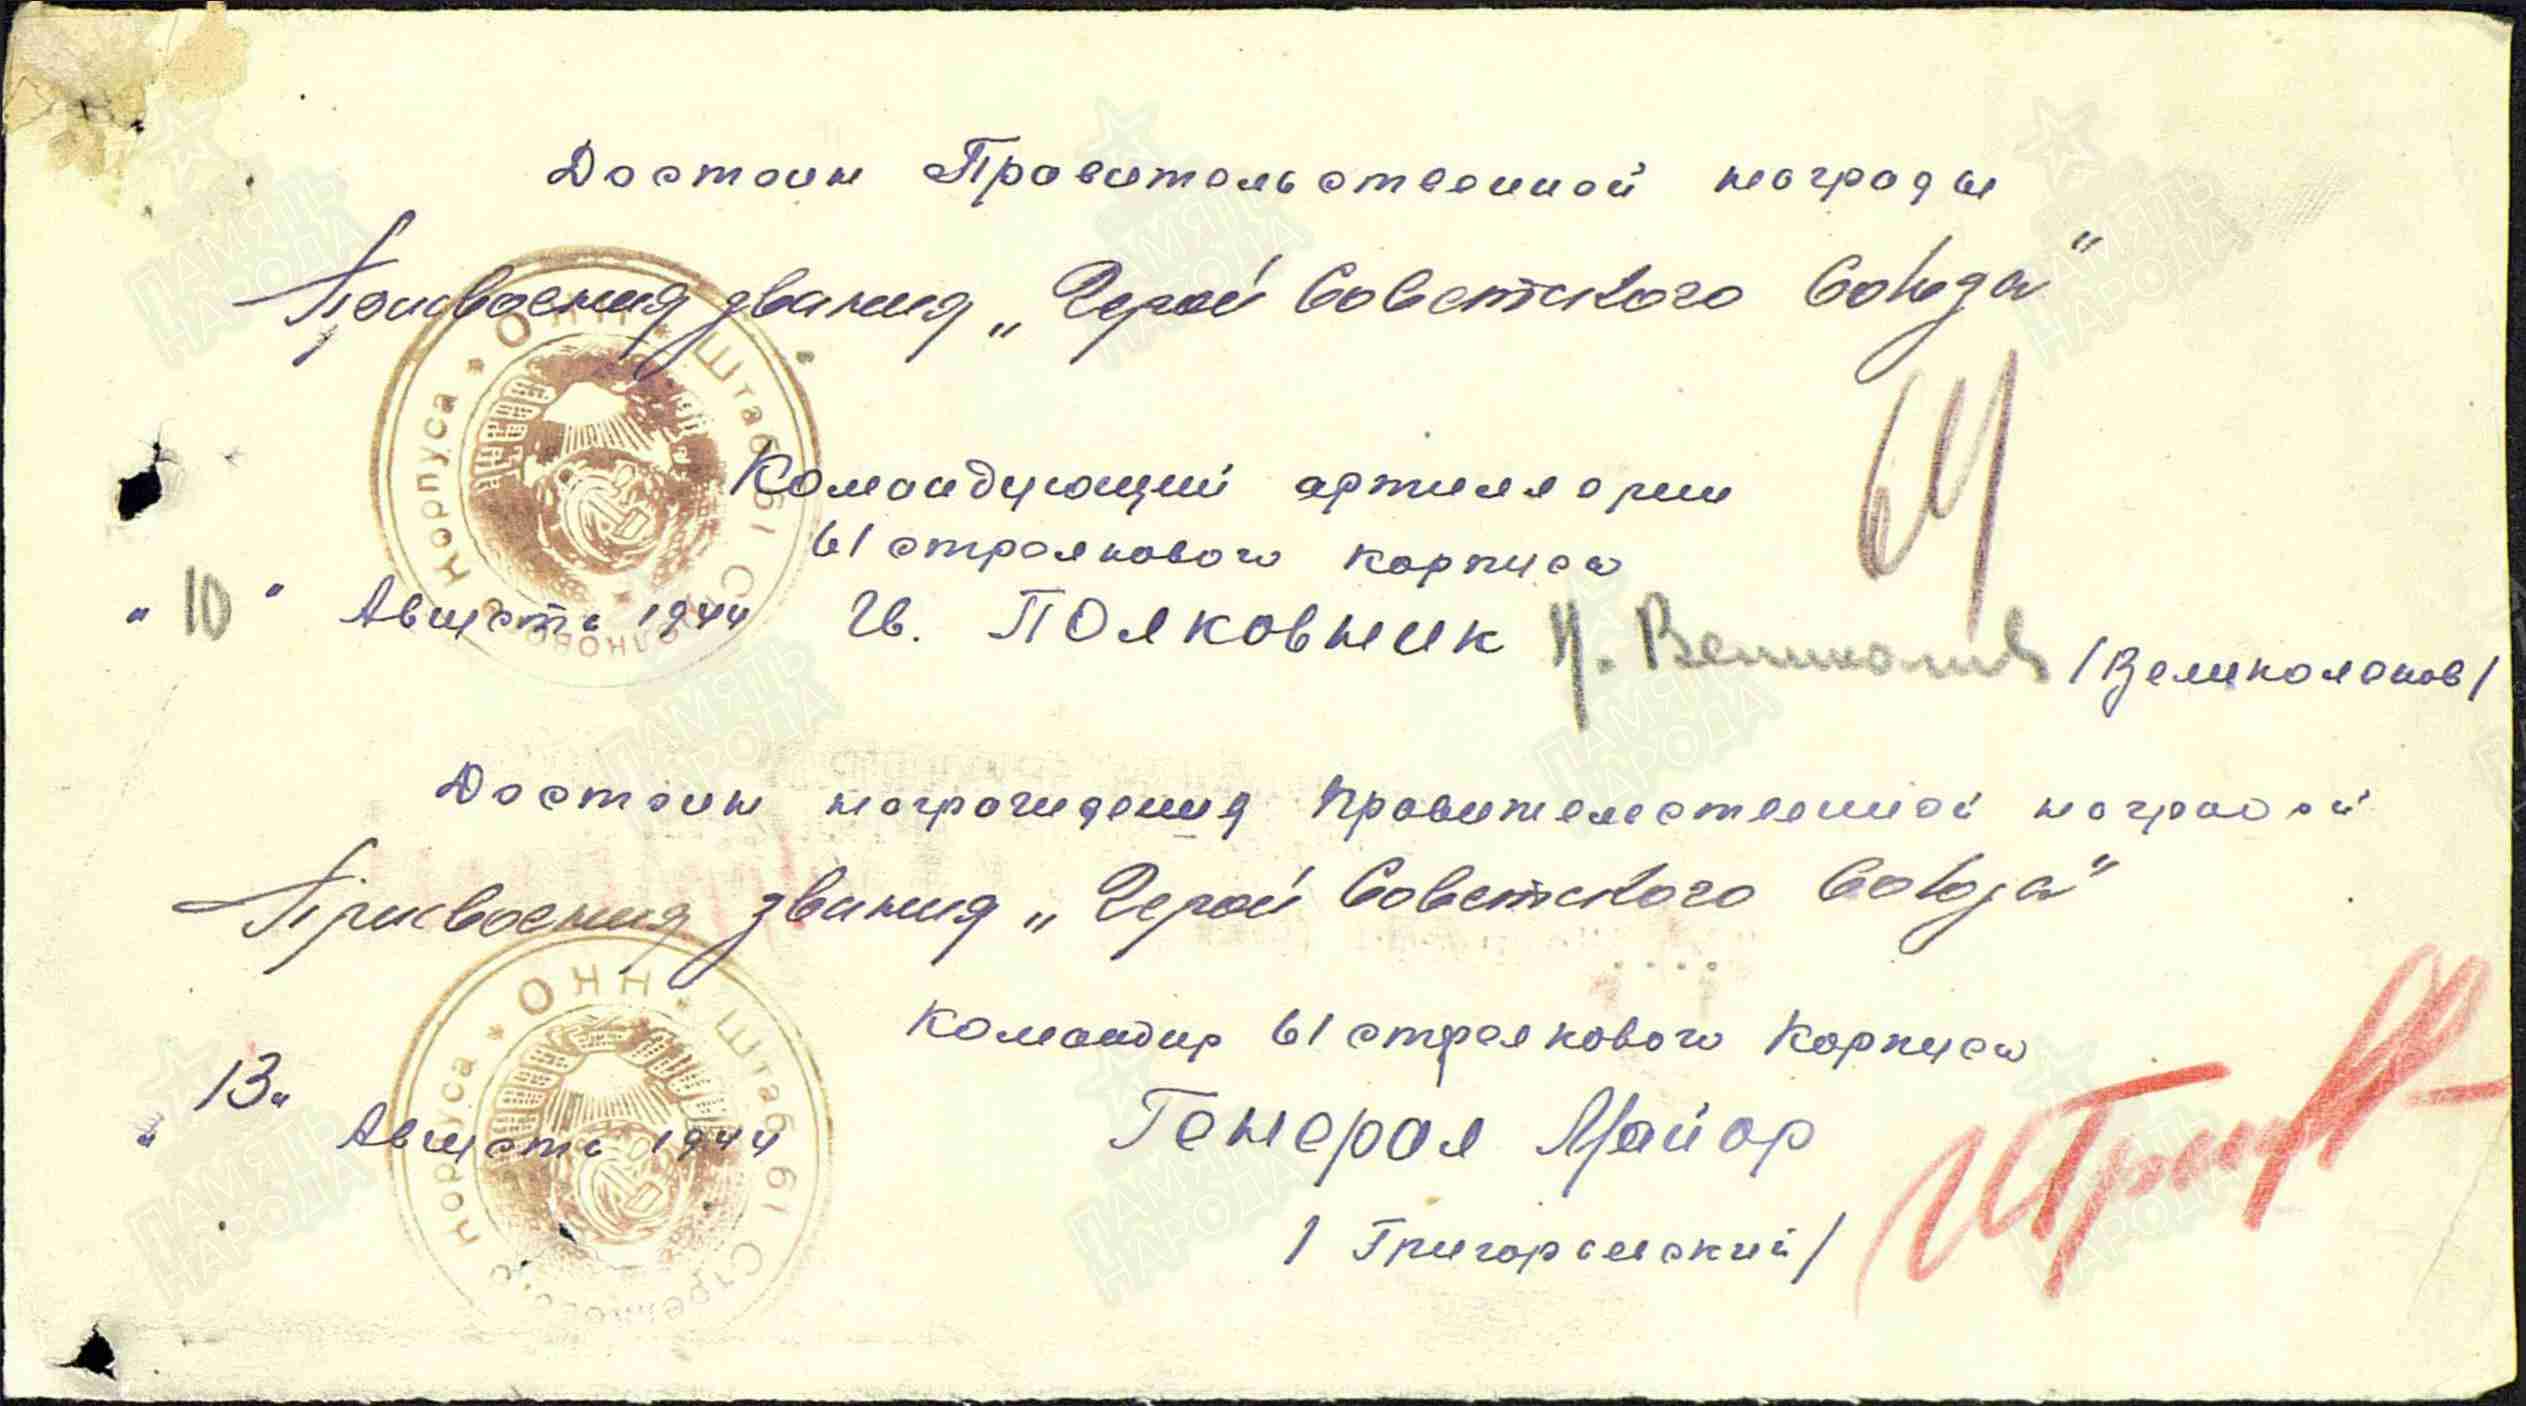 Достоин Правительственной награды
Присвоения звания „Герой Советского Союза"
64
Командующий артиллерии
61 стрелкового корпуса
"10" Августа 1944 Гв. Полковник И. Великолепов /Великолепов/
Достоин награждения Правительственной наградой
Присвоения звания „Герой Советского Союза"
Командир 61 стрелкового Корпуса
"13" Августа 1944 Генерал Майор
/Григоровский/
ОНН * Штаб 61 Стрелкового Корпуса *
ОНН * Штаб 61 Стрелкового Корпуса *
ПАМЯТЬ НАРОДА